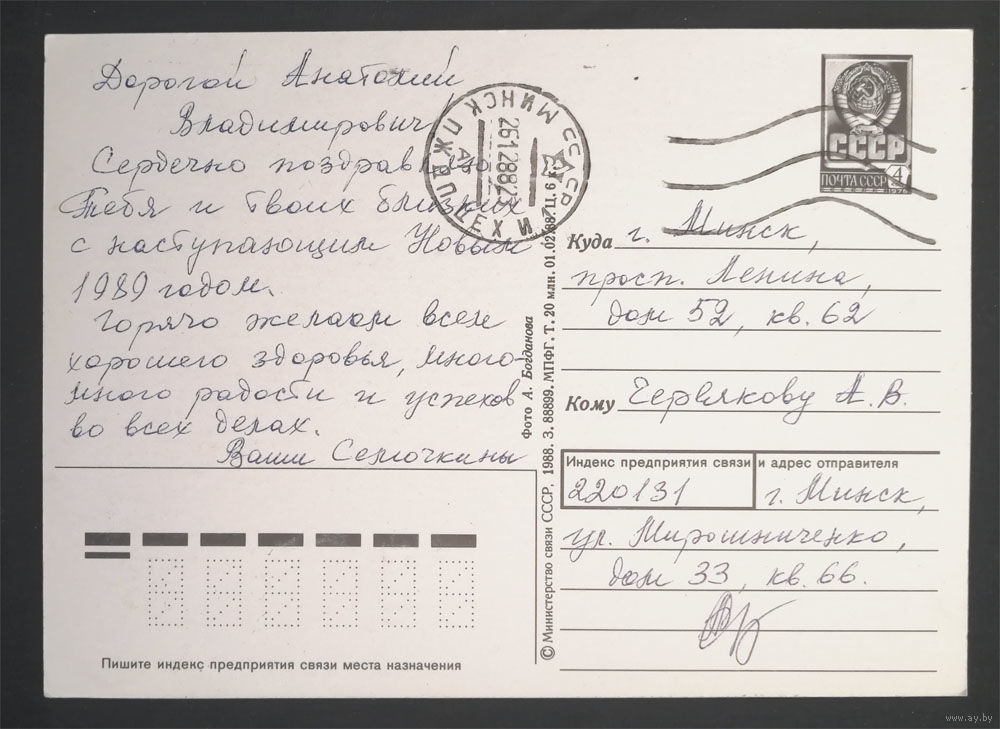 Дорогой Анатолий
Владимирович,
Сердечно поздравляю
Тебя и твоих близких
с наступающим Новым
1989 годом.
Горячо желаем всем
хорошего здоровья, много-
много радости и успехов
во всех делах.
Ваши Семочкины
МИНСК ПЖДП ЦЕХ И
СССР
261288
СССР
ПОЧТА СССР
4
1976
Куда г. Минск,
просп. Ленина,
дом 52, кв. 62
Кому Червякову А.В.
Индекс предприятия связи и адрес отправителя
220131 г. Минск,
ул. Мирошниченко,
дом 33, кв. 66.
Фото А. Богданова
© Министерство связи СССР, 1988. З. 88899. МПФГ. Т. 20 млн. 01.02.88. Ц. 6 к.
Пишите индекс предприятия связи места назначения
www.ay.by